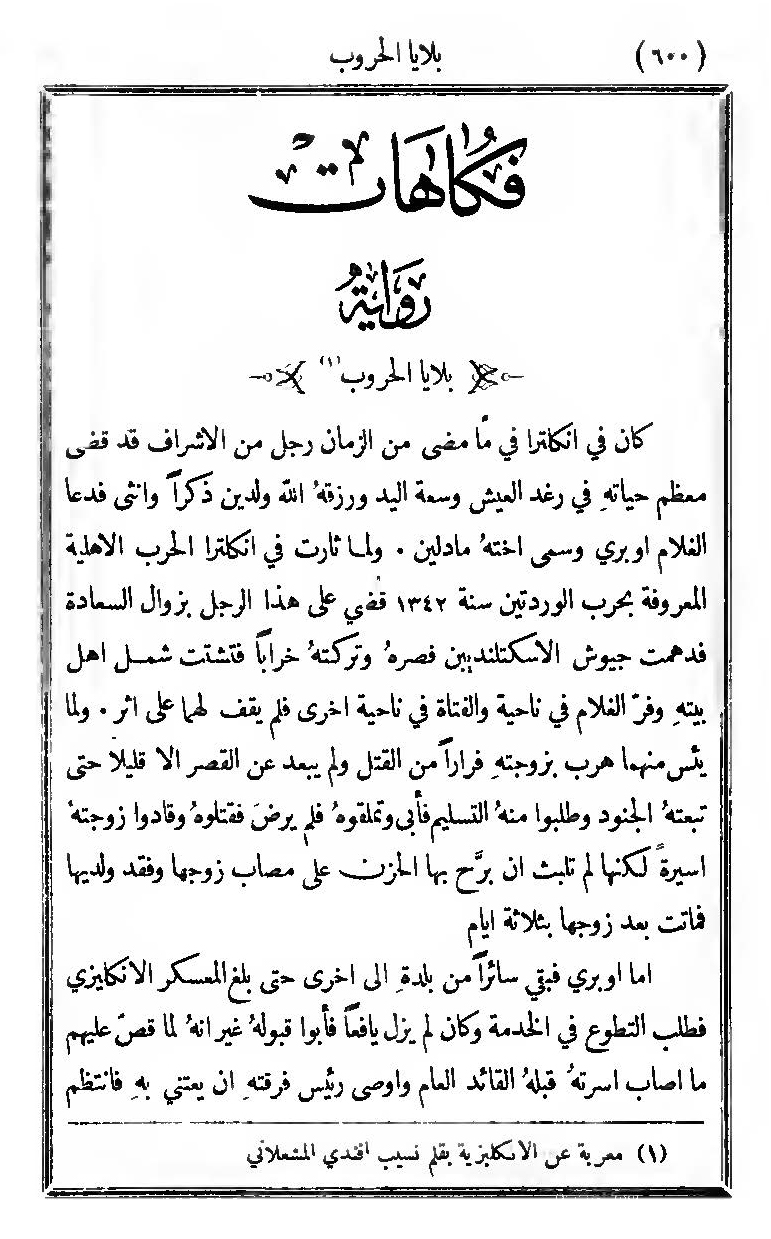 (٦٠٠) بلايا الحروب
فُكَاهَات
رِوَايَة
بلايا الحروب (١)
كان في انكلترا في مَا مضى من الزمان رجل من الاشراف قد قضى
معظم حياتهِ في رغد العيش وسعة اليد ورزقهُ الله ولدين ذكراً وانثى فدعا
الغلام اوبري وسمى اختهُ مادلين ٠ ولما ثارت في انكلترا الحرب الاهلية
المعروفة بحرب الوردتين سنة ١٣٤٢ قُضي على هذا الرجل بزوال السعادة
فدهمت جيوش الاسكتلنديين قصرهُ وتركتهُ خراباً فتشتت شمـل اهل
بيتهِ وفرّ الغلام في ناحية والفتاة في ناحية اخرى فلم يقف لهما على اثر ٠ ولما
يئس منهما هرب بزوجتهِ فراراً من القتل ولم يبعد عن القصر الا قليلاً حتى
تبعتهُ الجنود وطلبوا منهُ التسليم فأبى وتملقوهُ فلم يرضَ فقتلوهُ وقادوا زوجتهُ
اسيرةً لكنها لم تلبث ان برَّح بها الحزن على مصاب زوجها وفقد ولديها
فماتت بعد زوجها بثلاثة ايام
اما اوبري فبقي سائراً من بلدةٍ الى اخرى حتى بلغ المعسكر الانكليزي
فطلب التطوع في الخدمة وكان لم يزل يافعاً فأبوا قبولهُ غير انهُ لما قصّ عليهم
ما اصاب اسرتهُ قبلهُ القائد العام واوصى رئيس فرقتهِ ان يعتني بهِ فانتظم
(١) معربة عن الانكليزية بقلم نسيب افندي المشعلاني